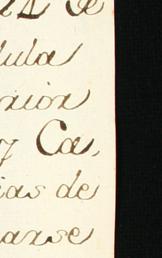 de
dula
nion
y Ca,
ias de
narse